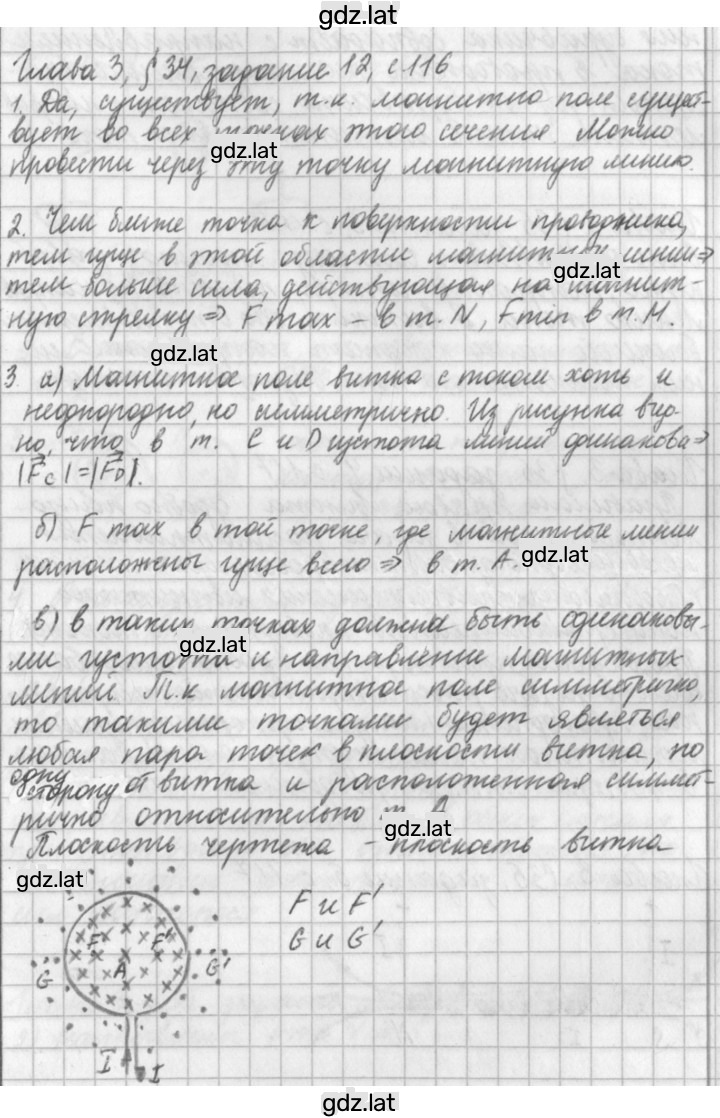 gdz.lat
Глава 3, § 34, задание 12, с 116
1. Да, существует, т.к. магнитно поле сущест-
вует во всех точках этого сечения. Можно
gdz.lat
провести через эту точку магнитную линию.
2. Чем ближе точка к поверхности проводника,
тем гуще в этой области магнитная линии⇒
gdz.lat
тем больше сила, действующая на магнит-
ную стрелку ⇒ F max – в т. N, F min в т. М.
gdz.lat
3. а) Магнитное поле витка с током хоть и
неоднородно, но симметрично. Из рисунка вид-
но, что в т. C и D густота линий одинакова⇒
|F⃗c|=|F⃗D|.
б) F max в той точке, где магнитные линии
расположены гуще всего ⇒ в т. А.
gdz.lat
в) В таких точках должна быть одинаковы-
gdz.lat
ми густота и направление магнитных
линий. Т.к магнитное поле симметрично,
то такими точками будет являться
любая пара точек в плоскости витка, по
одну
сторону от витка и расположенная симмет-
рично относительно т. А
gdz.lat
Плоскость чертежа – плоскость витка
gdz.lat
F и F'
G и G'
F F'
A
G G'
I I
gdz.lat